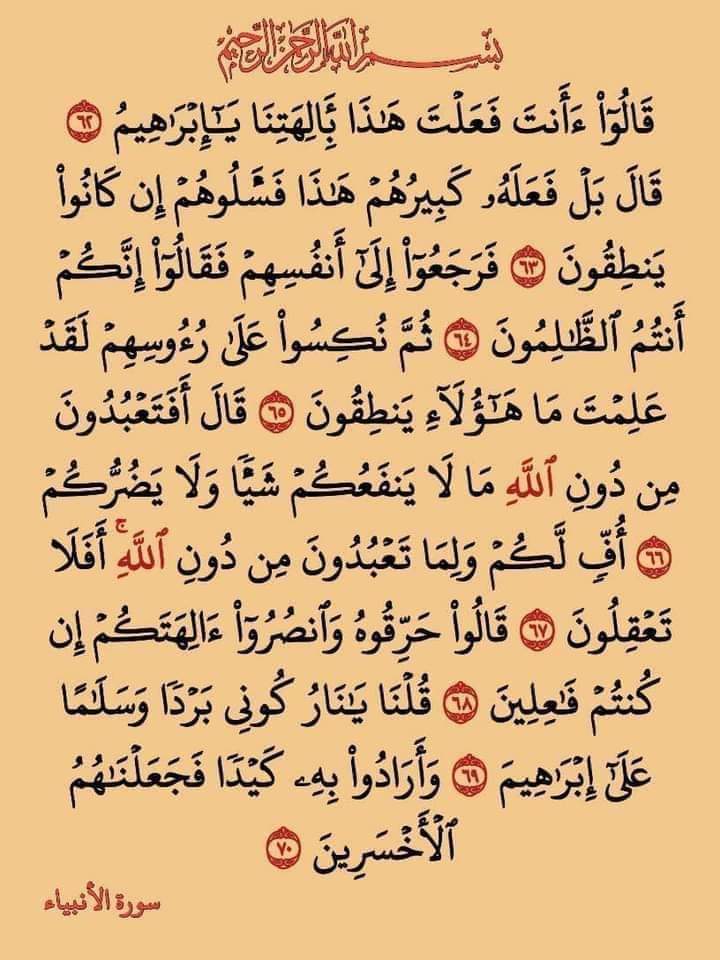 بِسْمِ اللَّهِ الرَّحْمَٰنِ الرَّحِيمِ
قَالُوٓا۟ ءَأَنتَ فَعَلْتَ هَٰذَا بِـَٔالِهَتِنَا يَٰٓإِبْرَٰهِيمُ ٦٢
قَالَ بَلْ فَعَلَهُۥ كَبِيرُهُمْ هَٰذَا فَسْـَٔلُوهُمْ إِن كَانُوا۟
يَنطِقُونَ ٦٣ فَرَجَعُوٓا۟ إِلَىٰٓ أَنفُسِهِمْ فَقَالُوٓا۟ إِنَّكُمْ
أَنتُمُ ٱلظَّٰلِمُونَ ٦٤ ثُمَّ نُكِسُوا۟ عَلَىٰ رُءُوسِهِمْ لَقَدْ
عَلِمْتَ مَا هَٰٓؤُلَآءِ يَنطِقُونَ ٦٥ قَالَ أَفَتَعْبُدُونَ
مِن دُونِ ٱللَّهِ مَا لَا يَنفَعُكُمْ شَيْـًٔا وَلَا يَضُرُّكُمْ
٦٦ أُفٍّ لَّكُمْ وَلِمَا تَعْبُدُونَ مِن دُونِ ٱللَّهِ ۚ أَفَلَا
تَعْقِلُونَ ٦٧ قَالُوا۟ حَرِّقُوهُ وَٱنصُرُوٓا۟ ءَالِهَتَكُمْ إِن
كُنتُمْ فَٰعِلِينَ ٦٨ قُلْنَا يَٰنَارُ كُونِى بَرْدًا وَسَلَٰمًا
عَلَىٰٓ إِبْرَٰهِيمَ ٦٩ وَأَرَادُوا۟ بِهِۦ كَيْدًا فَجَعَلْنَٰهُمُ
ٱلْأَخْسَرِينَ ٧٠
سورة الأنبياء